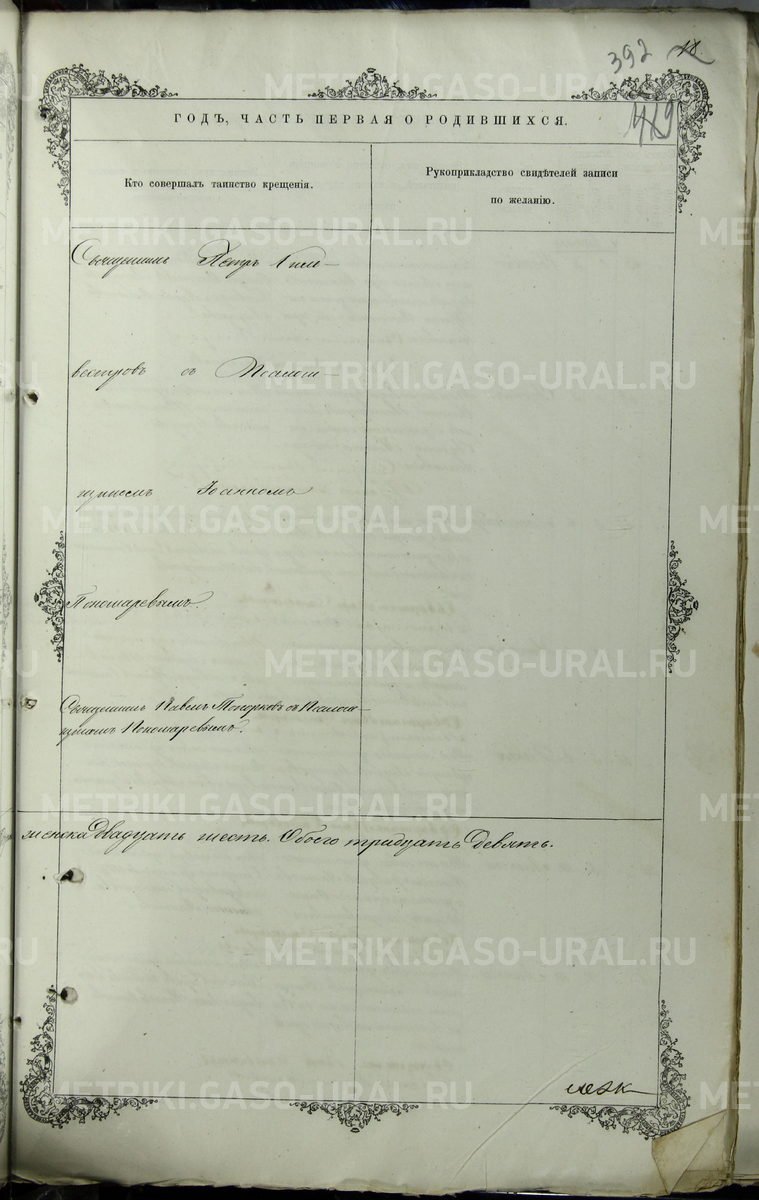 392 18.
419
ГОДЪ, ЧАСТЬ ПЕРВАЯ О РОДИВШИХСЯ.
Кто совершалъ таинство крещенія.
Рукоприкладство свидѣтелей записи
по желанію.
Священникъ Петръ Силь-
вестровъ съ Псалом-
щикомъ Іоанномъ
Пономаревымъ.
Священникъ Павелъ Топорковъ съ Псалом-
щикомъ Пономаревымъ.
женска двадцать шесть. Обоего тридцать девять.
METRIKI.GASO-URAL.RU